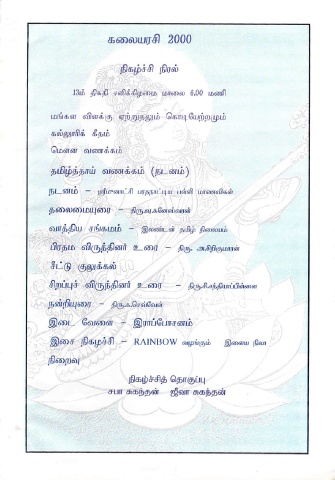 கலையரசி 2000
நிகழ்ச்சி நிரல்
13ம் திகதி சனிக்கிழமை மாலை 6.00 மணி
மங்கள விளக்கு ஏற்றுதலும் கொடியேற்றமும்
கல்லூரிக் கீதம்
மௌன வணக்கம்
தமிழ்த்தாய் வணக்கம் (நடனம்)
நடனம் – பரதநாட்டிய பள்ளி மாணவிகள்
தலைமையுரை –
வாத்திய சங்கமம் – இலண்டன் தமிழ் நிலையம்
பிரதம விருந்தினர் உரை – திரு.
சீட்டு குலுக்கல்
சிறப்புச் விருந்தினர் உரை –
நன்றியுரை –
இடை வேளை – இராப்போசனம்
இசை நிகழ்ச்சி – RAINBOW வழங்கும் இளைய நிலா
நிறைவு
நிகழ்ச்சித் தொகுப்பு
சபா சுகந்தன் ஜீவா சுகந்தன்